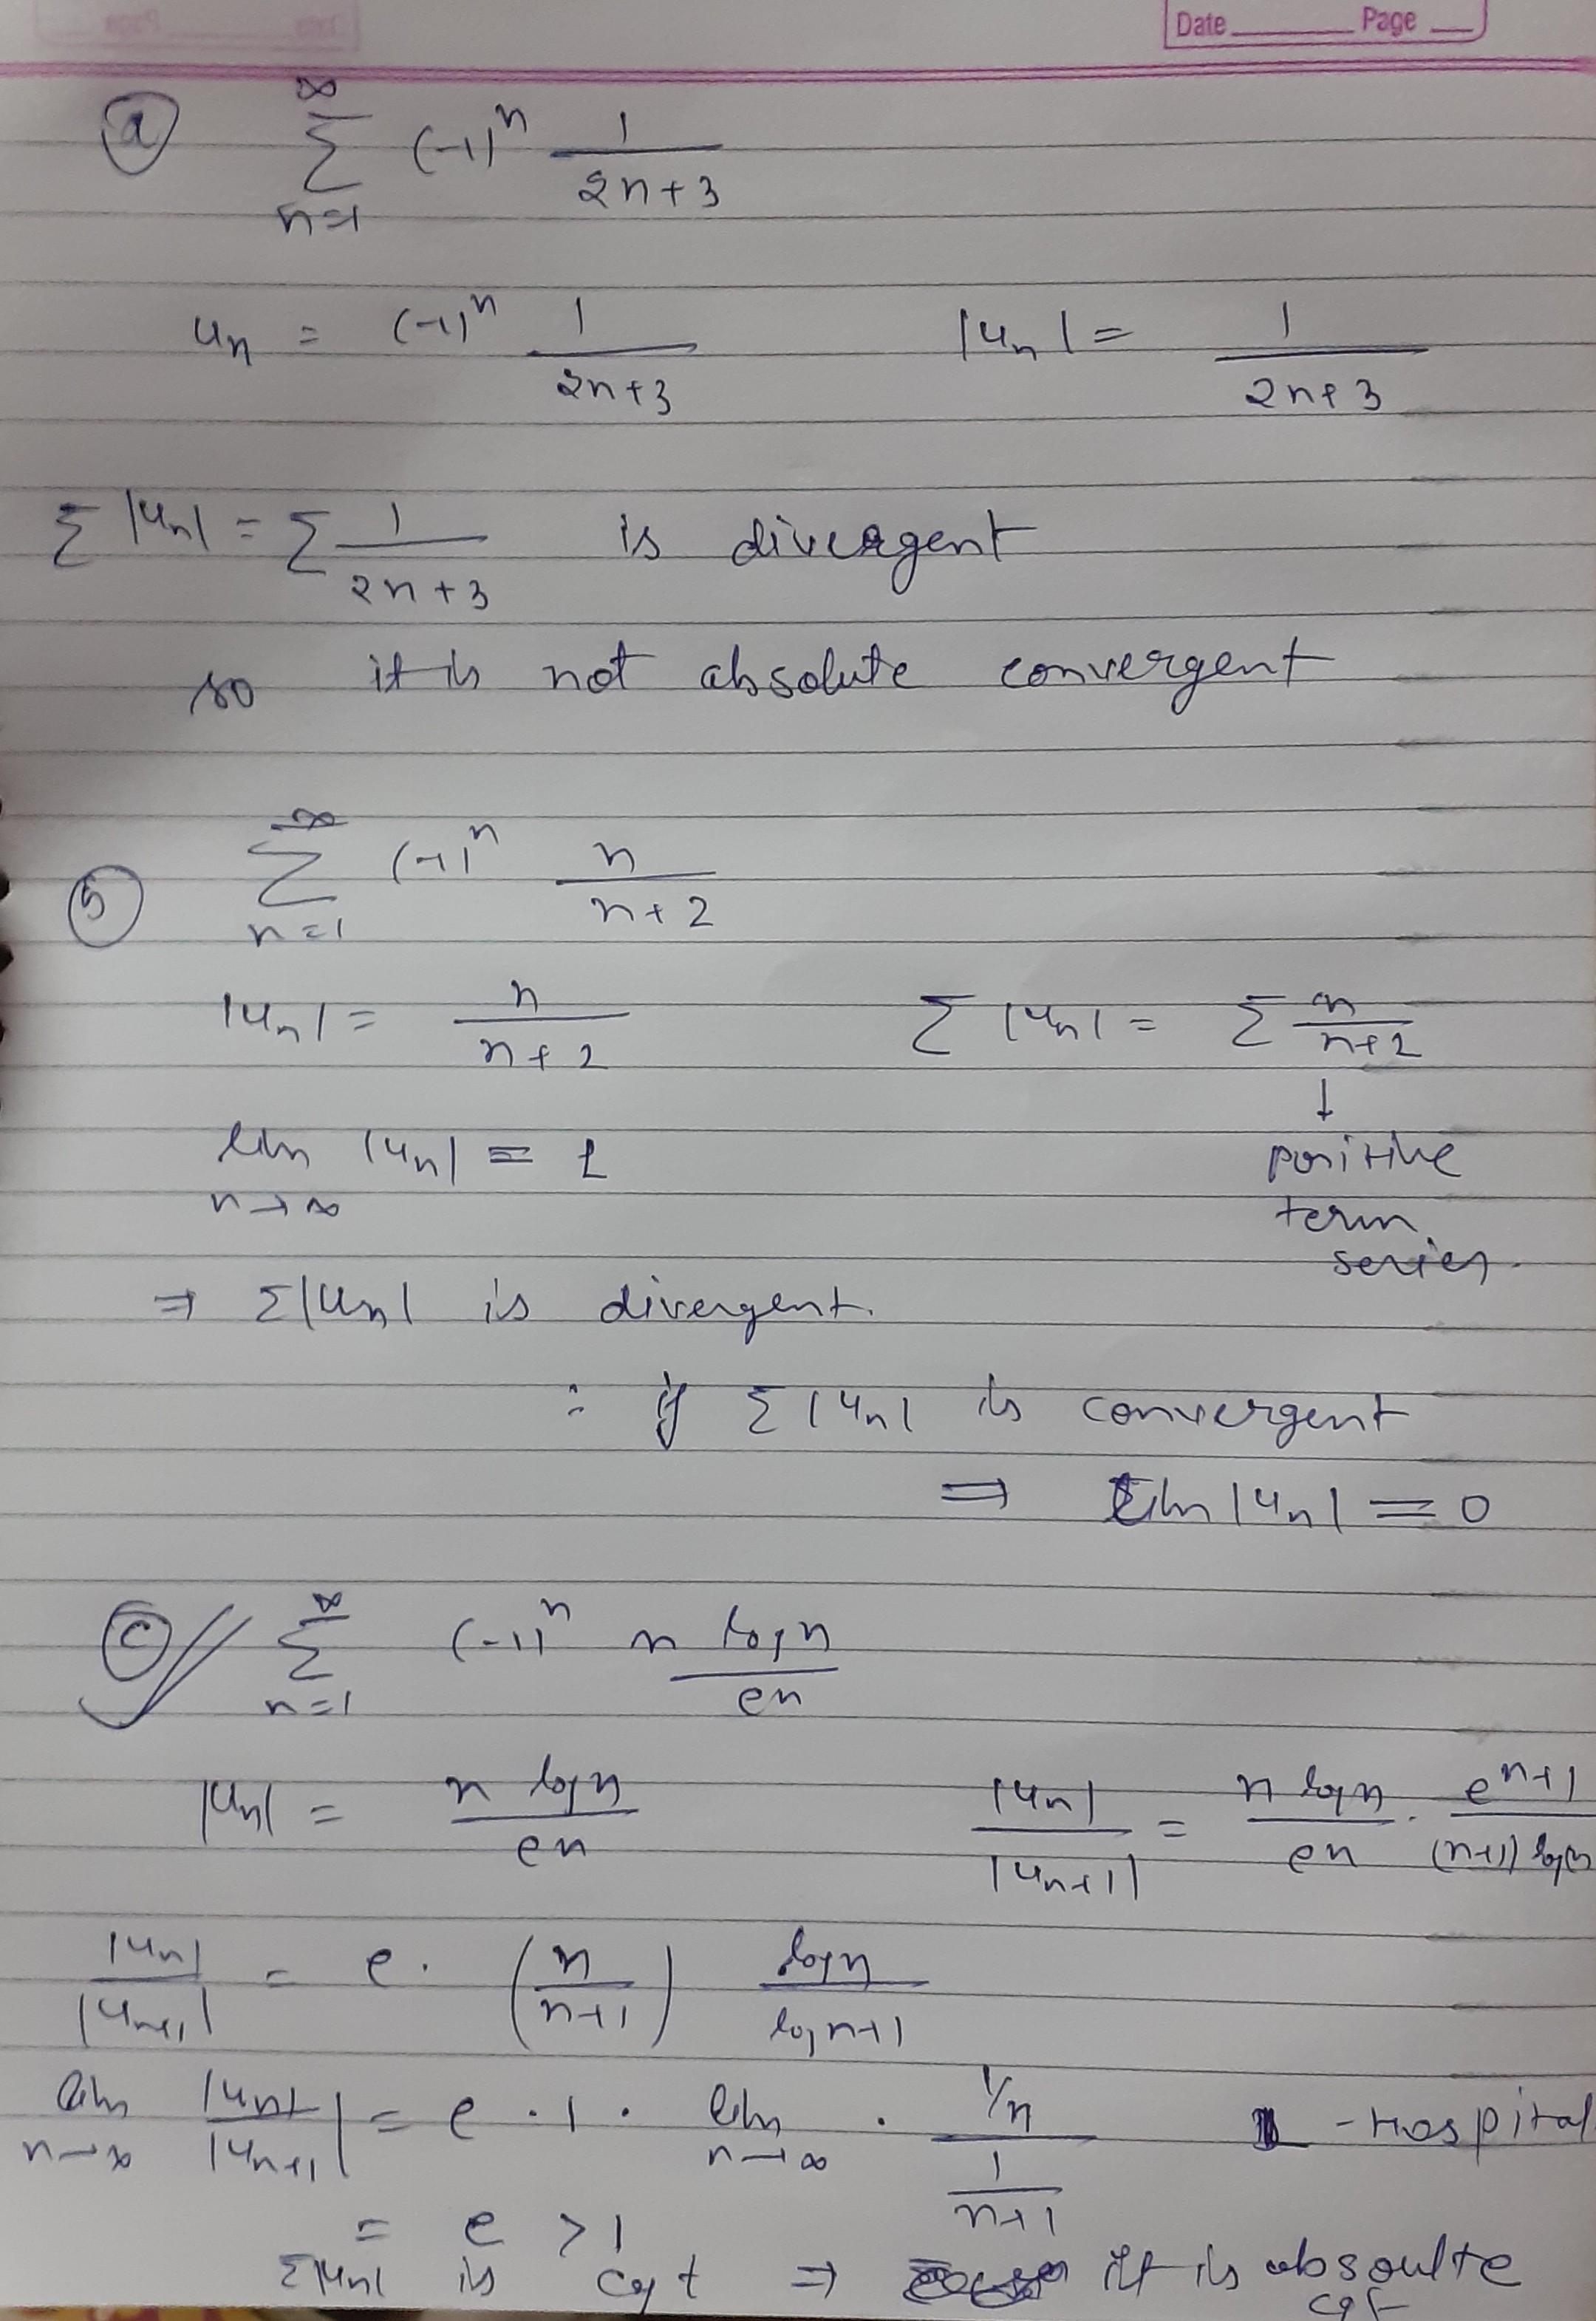 Date Page
(a) ∞ Σ n=1 (-1)^n 1/(2n+3)
u_n = (-1)^n 1/(2n+3) |u_n| = 1/(2n+3)
Σ|u_n| = Σ 1/(2n+3) is divergent
so it is not absolute convergent
(b) ∞ Σ n=1 (-1)^n n/(n+2)
|u_n| = n/(n+2) Σ|u_n| = Σ n/(n+2)
↓
lim n→∞ |u_n| = 1 positive
term
series.
⇒ Σ|u_n| is divergent.
: if Σ|u_n| is convergent
⇒ lim |u_n| = 0
(c) ∞ Σ n=1 (-1)^n n log n / en
|u_n| = n log n / en |u_n|/|u_n+1| = n log n / en . e^n+1 / (n+1) log(n
|u_n|/|u_n+1| = e. (n/(n+1)) log n / log n+1
lim n→∞ |u_n|/|u_n+1| = e . 1 . lim n→∞ . (1/n)/(1/(n+1)) L-Hospital
= e > 1
Σ|u_n| is cgt ⇒ it is absoulte
cgt